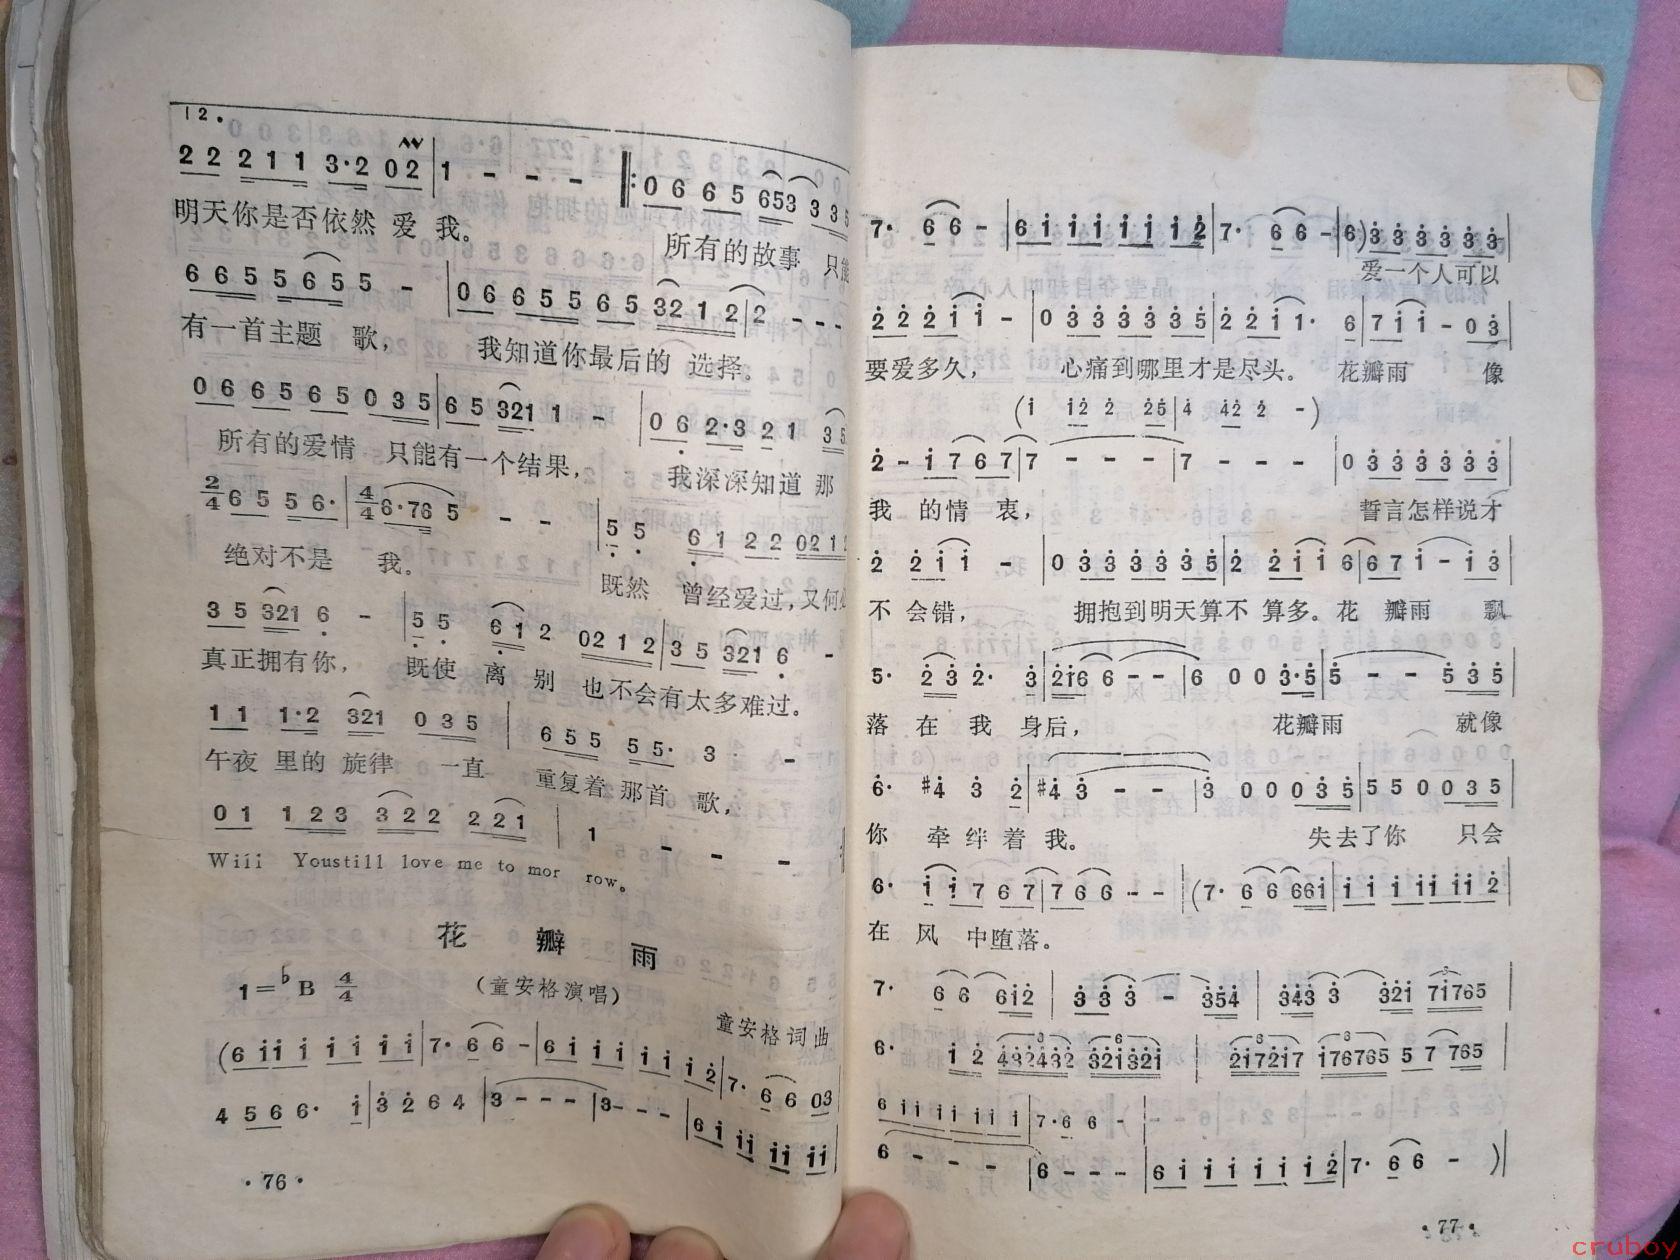 12.
2 2 2 1 1 3·2 0 2 | 1 - - - ‖: 0 6 6 5 653 3 3 5
明天你是否依然 爱 我。 所有的故事 只能
6 6 5 5 6 5 5 - | 0 6 6 5 5 6 5 321 2 2 - - -
有一首主题 歌， 我知道你最后的 选择。
0 6 6 5 6 5 0 3 5 | 6 5 321 1 - | 0 6 2·3 2 1 3 5
所有的爱情 只能有一个结果， 我深深知道 那
2/4 6 5 5 6· | 4/4 6·76 5 - - | 5 5 6 1 2 2 0 2 1 2
绝对不是 我。 既然 曾经爱过，又何必
3 5 321 6 - | 5 5 6 1 2 0 2 1 2 | 3 5 321 6 -
真正拥有你， 既使 离 别 也不会有太多难过。
1 1 1·2 321 0 3 5 | 6 5 5 5 5· 3 -
午夜 里的 旋律 一直 重复着 那首 歌，
0 1 1 2 3 3 2 2 2 2 1 | 1 - - -
Wiii Youstill love me to mor row。
花 瓣 雨
1=♭B 4/4 （童安格演唱）
童安格词曲
(6 i i i i i i i i | 7· 6 6 - | 6 i i i i i i 2 | 7· 6 6 0 3
4 5 6 6· i | 3 2 6 4 | 3 - - - | 3 - - - | 6 i i i i i i i
·76·
7· 6 6 - | 6 i i i i i i i 2 | 7· 6 6 - | 6) 3 3 3 3 3 3
爱一个人可以
2 2 2 i i - | 0 3 3 3 3 3 5 | 2 2 i i· 6 | 7 i i - 0 3
要爱多久， 心痛到哪里才是尽头。 花瓣雨 像
(i i 2 2 2 5 | 4 4 2 2 -)
2 - i 7 6 7 | 7 - - - | 7 - - - | 0 3 3 3 3 3 3
我 的情 衷， 誓言怎样说才
2 2 i i - | 0 3 3 3 3 3 5 | 2 2 i i 6 | 6 7 i - i 3
不 会错， 拥抱到明天算不 算多。花 瓣雨 飘
5· 2 3 2· 3 | 2i6 6 - - | 6 0 0 3·5 | 5 - - 5 3 5
落 在 我 身后， 花瓣雨 就像
6· #4 3 2 | #4 3 - - | 3 0 0 0 3 5 | 5 5 0 0 3 5
你 牵 绊 着 我。 失去了你 只会
6· i i 7 6 7 | 7 6 6 - - | (7· 6 6 66i | i i i i i i i 2
在 风 中堕落。
7· 6 6 6i2 | 3 3 3 - 354 | 343 3 32i 7i765
6· i 2 432432 32i32i | 2i72i7 i76765 5 7 765
6 i i i i i i i | 7·6 6 - |
6 - - - | 6 - - - | 6 i i i i i i 2 | 7· 6 6 - )
·77·
cruboy